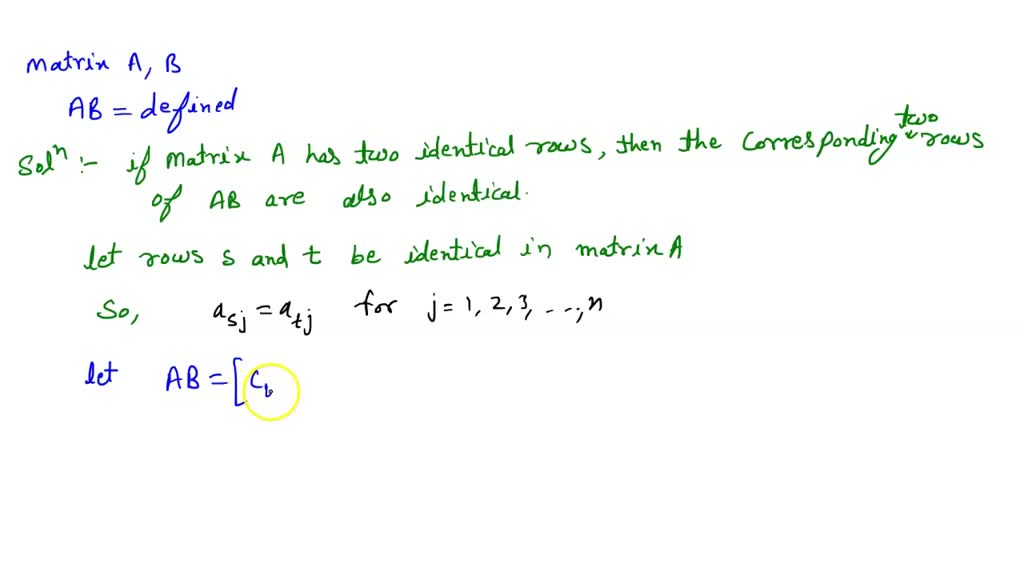 matrix A, B
AB = defined
Solⁿ :- if matrix A has two identical rows, then the corresponding two rows
of AB are also identical.
let rows s and t be identical in matrix A
So, a_sj = a_tj for j = 1, 2, 3, - - -, n
let AB = [ C